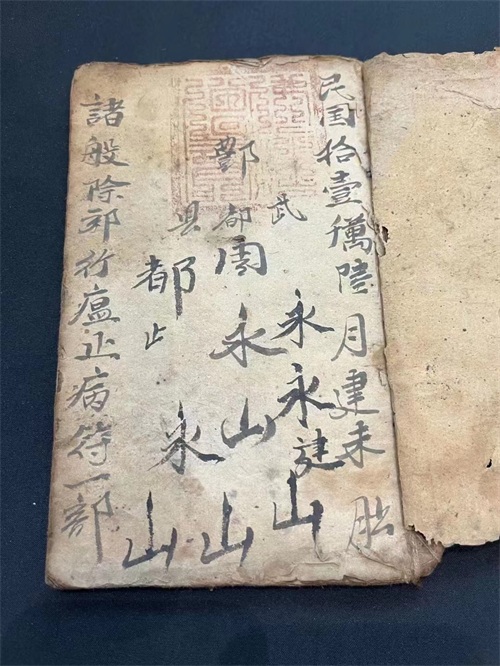 民国拾壹
陸月建未
武
永永建山
酆都
周永山山
县
都止永山
諸般除邪行瘟止病符一部